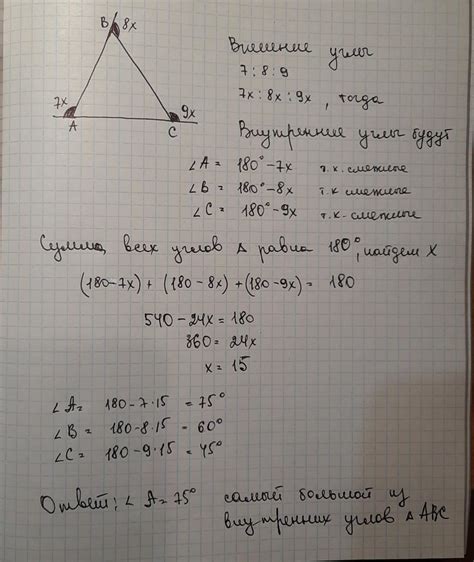 B 8x
7x
A
C
9x
Внешние углы
7:8:9
7x:8x:9x, тогда
Внутренние углы будут
∠A = 180°-7x т.к. смежные
∠B = 180°-8x т.к смежные
∠C = 180°-9x т.к. смежные
Сумма всех углов Δ равна 180°, найдем X
(180-7x) + (180-8x) + (180-9x) = 180
540 - 24x = 180
360 = 24x
x = 15
∠A = 180-7·15 = 75°
∠B = 180-8·15 = 60°
∠C = 180-9·15 = 45°
Ответ: ∠A = 75° самый большой из
внутренних углов Δ ABC